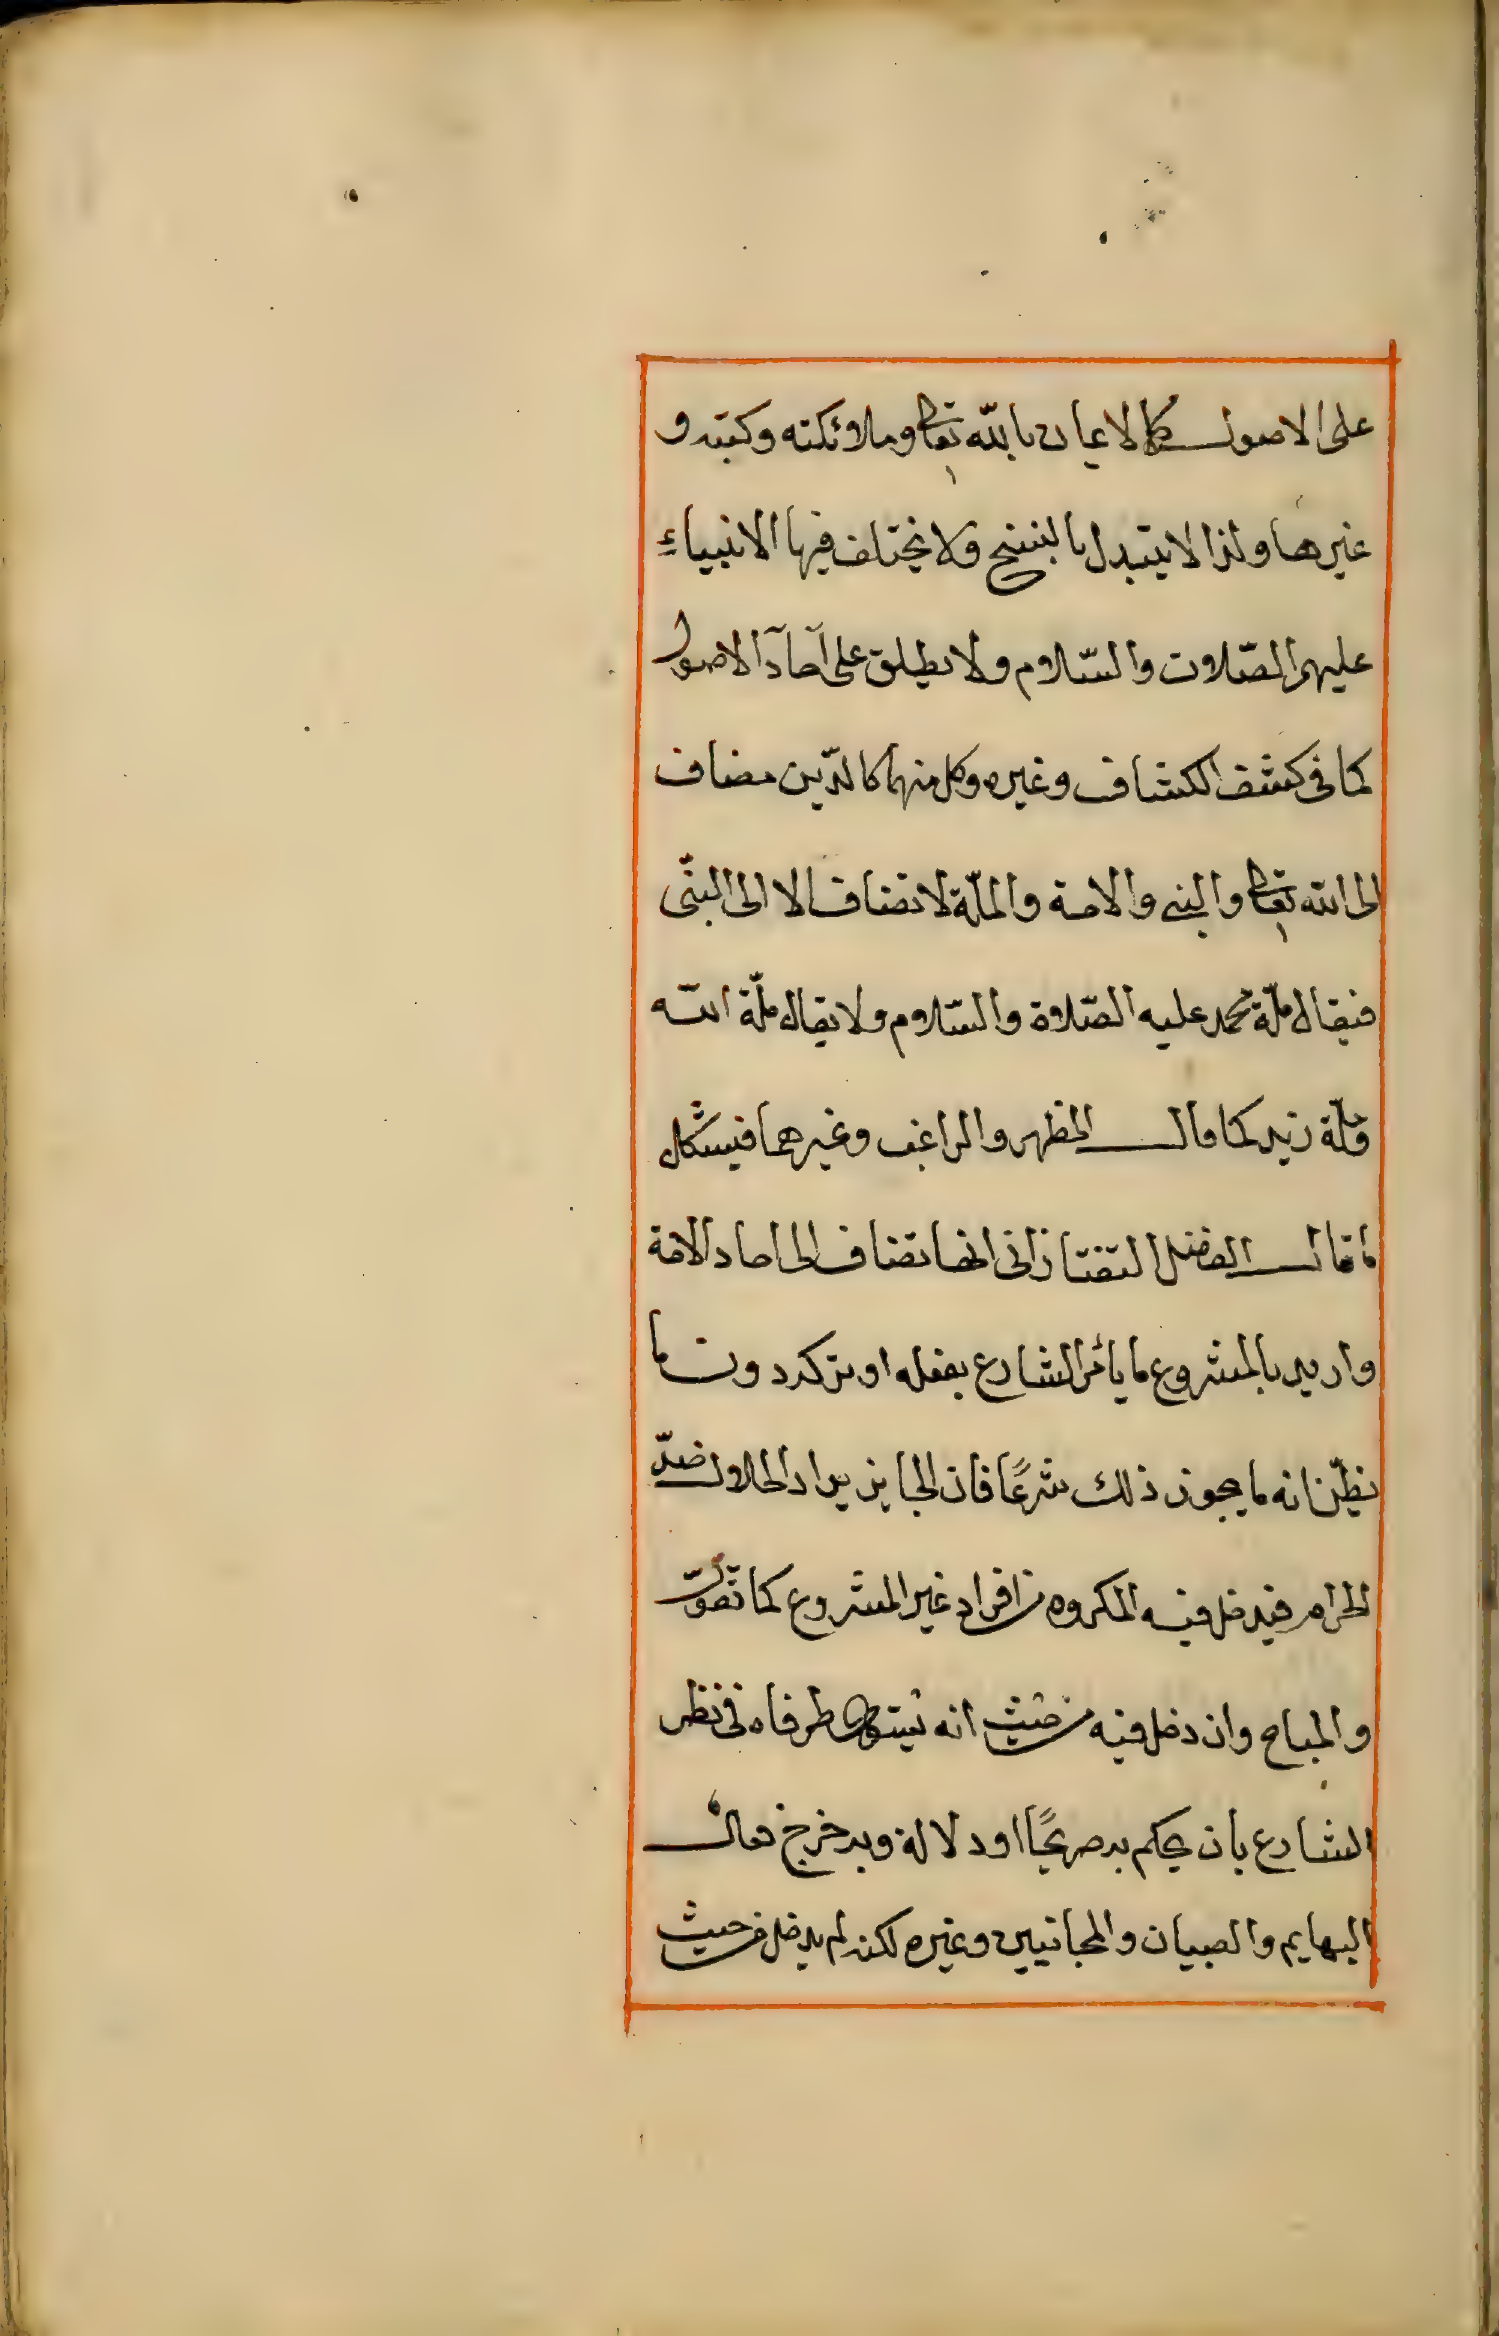 على الاصول كالايمان بالله تعالى وملائكته وكتبه و
غيرها ولذا لا يتبدل بالنسخ ولا يختلف فيها الانبياء
عليهم الصّلاة والسّلام ولا يطلق على آحاد الاصول
كما فى كشف الكشاف وغيره وكل منهما كالدّين مضاف
الى الله تعالى والنبى والامة والملّة لا تضاف الا الى النبّى
فيقال ملّة محمد عليه الصّلاة والسّلام ولا يقال ملّة الله
وملّة زيد كما قال المظهر والراغب وغيرهما فيشكل
ما قال الفاضل التفتازانى انها تضاف الى احاد الامة
واريد بالمشروع ما يأمر الشارع بفعله او بتركه دون ما
يظنّ انه ما يجوز ذلك شرعًا فان الجايز يراد الحلال ضدّ
الحرام فيدخل فيه المكروه من افراد غير المشروع كما تقرّر
والمباح وان دخل فيه من حيث انه تيتكل طرفاه فى نظر
الشارع بان يحكم به صريحًا او دلالة وبه خرج فعال
البهايم والصبيان والمجانيين وغيره لكنه لم يدخل من حيث